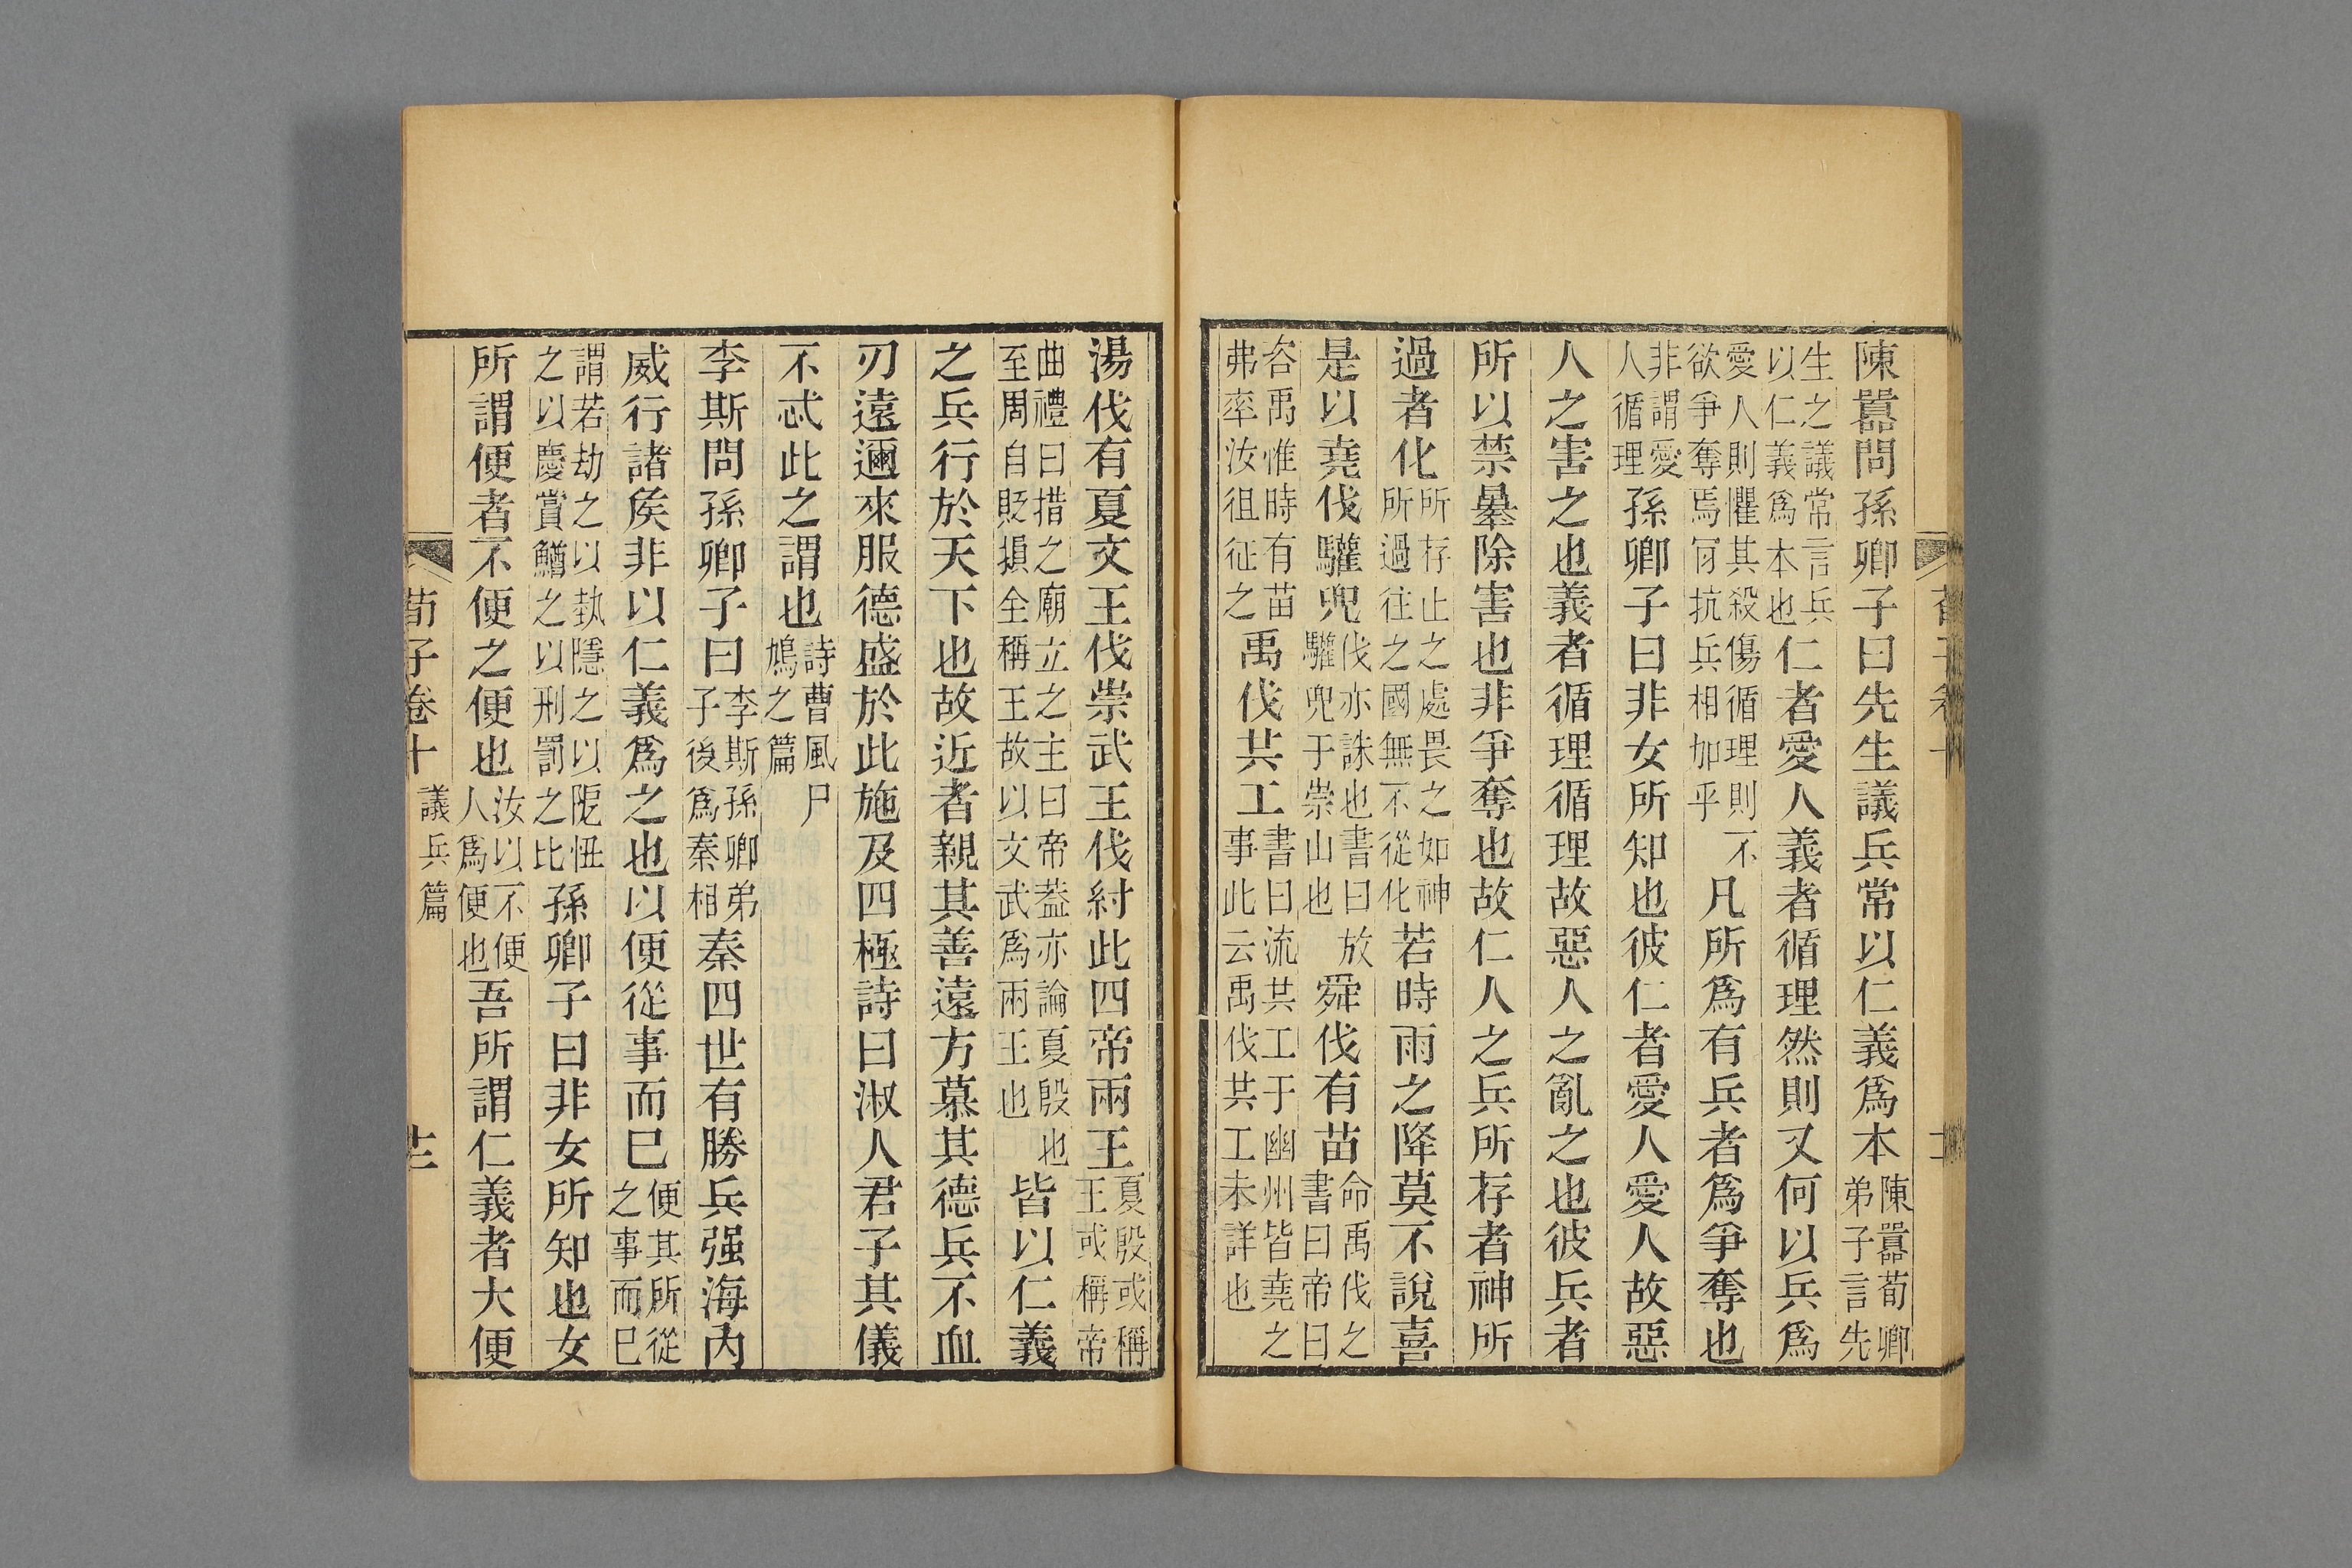 陳囂問孫卿子曰先生議兵常以仁義爲本陳囂荀卿弟子言先
生之議常言兵以仁義爲本也仁者愛人義者循理然則又何以兵爲
愛人則懼其殺傷循理則不欲爭奪焉肎抗兵相加乎凡所爲有兵者爲爭奪也
非謂愛人循理孫卿子曰非女所知也彼仁者愛人愛人故惡
人之害之也義者循理循理故惡人之亂之也彼兵者
所以禁暴除害也非爭奪也故仁人之兵所存者神所
過者化所存止之處畏之如神所過往之國無不從化若時雨之降莫不說喜
是以堯伐驩兜伐亦誅也書曰放驩兜于崇山也舜伐有苗命禹伐之書曰帝曰
咨禹惟時有苗弗率汝徂征之禹伐共工書曰流共工于幽州皆堯之事此云禹伐共工未詳也
湯伐有夏文王伐崇武王伐紂此四帝兩王夏殷或稱王或稱帝
曲禮曰措之廟立之主曰帝葢亦論夏殷也至周自貶損全稱王故以文武爲兩王也皆以仁義
之兵行於天下也故近者親其善遠方慕其德兵不血
刃遠邇來服德盛於此施及四極詩曰淑人君子其儀
不忒此之謂也詩曹風尸鳩之篇
李斯問孫卿子曰李斯孫卿弟子後爲秦相秦四世有勝兵强海內
威行諸矦非以仁義爲之也以便從事而已便其所從之事而已
謂若劫之以埶隱之以阸忸之以慶賞鰌之以刑罰之比孫卿子曰非女所知也女
所謂便者不便之便也汝以不便人爲便也吾所謂仁義者大便
荀子卷十 議兵篇 十二